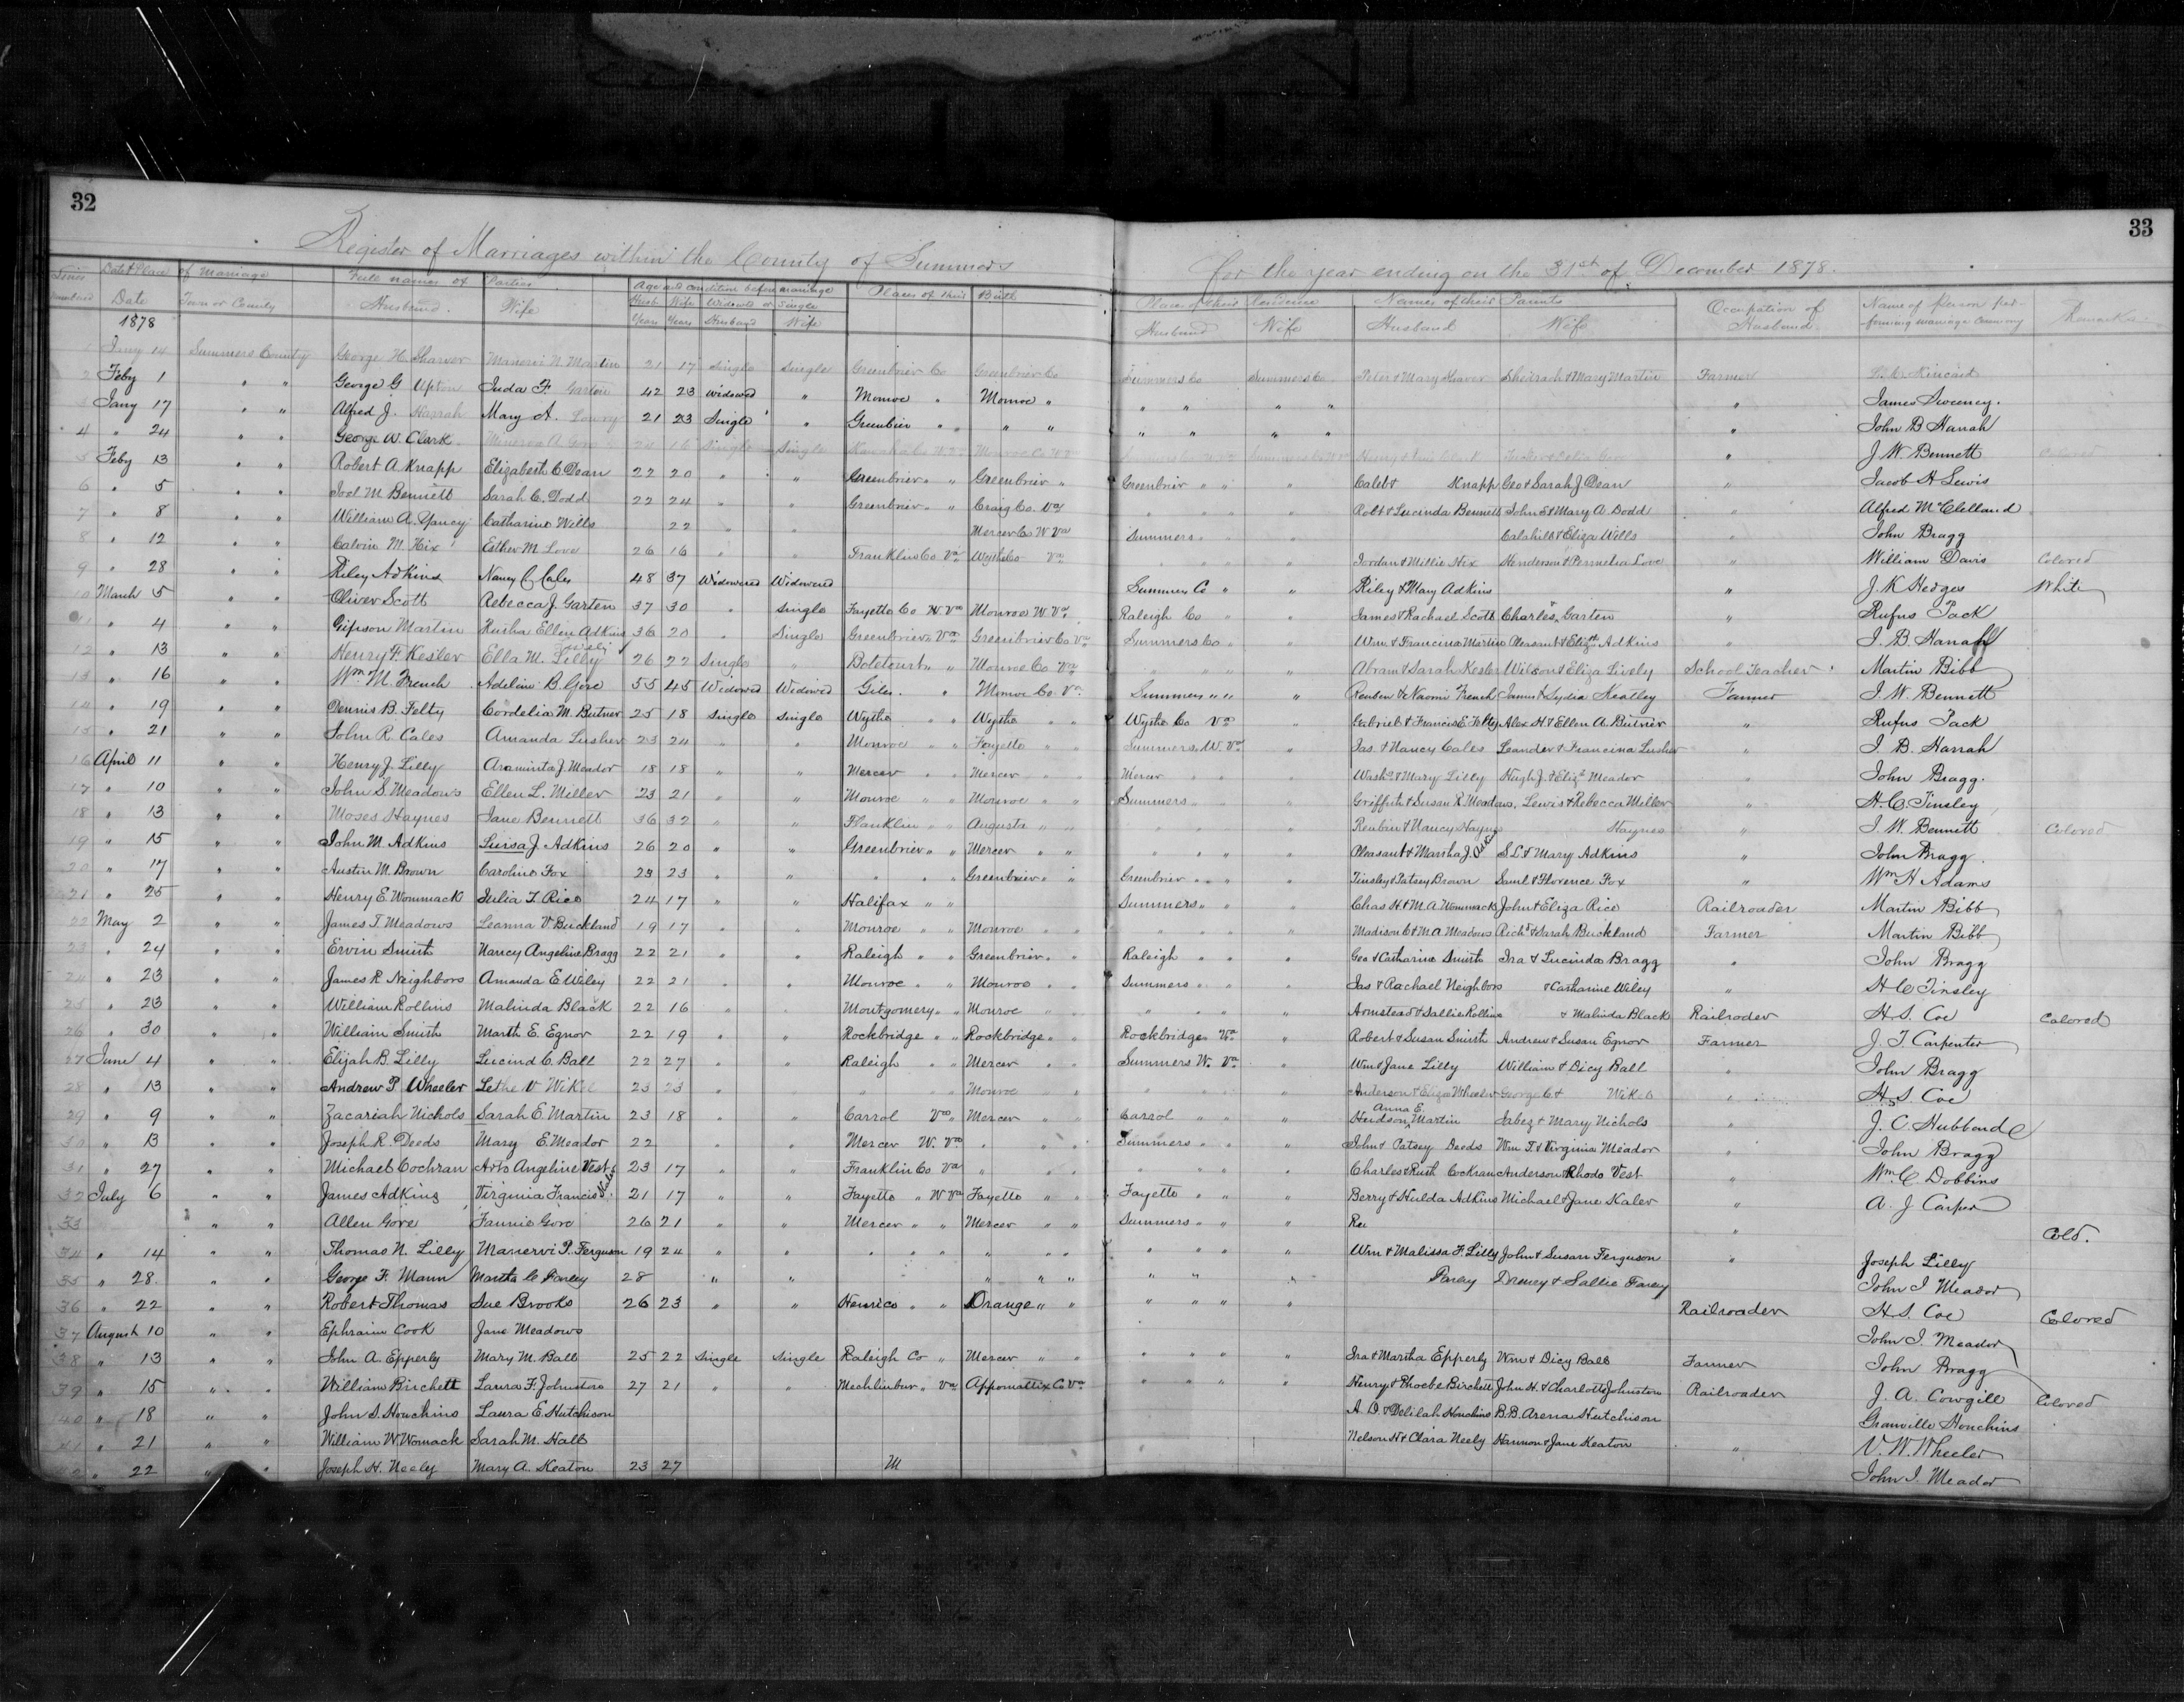 32
33
Register of Marriages within the County of Summers for the year ending on the 31st of December 1878.
Date & Place of Marriage Full names of Parties Age and condition before marriage Places of their Birth Place of their Residence Names of their Parents Occupation of Husband. Name of person performing marriage ceremony Remarks
Date Town or County Husband. Wife Husb Wife Widowed or Single Husband Wife Husband Wife
1878 Years Years Husband Wife
1 Jany 14 Summers County George H. Sharver Manervi N. Martin 21 17 Single Single Greenbrier Co Greenbrier Co Summers Co Summers Co Peter & Mary Shaver & Mary Martin Farmer Kincaid
2 Feby 1 " " George G Upton Juda F. Garten 42 23 widowed " Monroe " Monroe " " " " " " James Sweeney.
3 Jany 17 " " Alfred J. Harrah Mary A. Lowry 21 23 Single " Greenbrier " " " " " " " " " John B Harrah
4 " 24 " " George W. Clark Minerva A. 24 16 Single Single Monroe Co " J. W. Bennett Colored
5 Feby 13 " " Robert A. Knapp Elizabeth C Dean 22 20 " " Greenbrier " " Greenbrier " Greenbrier " " " Caleb & Knapp Geo & Sarah J Dean " Jacob H Lewis
6 " 5 " " Joel M Bennett Sarah C. Dodd 22 24 " " Greenbrier " " Craig Co. Va " " " " Robt & Lucinda Bennett John S & Mary A. Dodd " Alfred McClelland
7 " 8 " " William A. Yancy Catharine Wills 22 " " Mercer Co W Va Summers " " " & Eliza Wills " John Bragg
8 " 12 " " Calvin M. Hix Esther M. Love 26 16 " " Franklin Co Va Wythe Co Va " " " " Jordan & Millie Hix Henderson & Permelia Love " William Davis Colored
9 " 28 " " Riley Adkins Nancy C Cales 48 37 Widowered Widowered Summers Co " " Riley & Mary Adkins " J. K Hedges White
10 March 5 " " Oliver Scott Rebecca J. Garten 37 30 " single Fayette Co W. Va Monroe W. Va. Raleigh Co " " James & Rachael Scott Charles Garten " Rufus Pack
11 " 4 " " Gipson Martin Huiha Ellen Adkins 36 20 " Single Greenbrier " Va " Greenbrier Co. Va Summers Co " " Wm & Francina Martin Pleasant & Elizth Adkins " J. B. Harrah
12 " 13 " " Henry F. Kesler Ella M. Lilly 26 22 Single " Botetourt " " Monroe Co. Va " " " " Abram & Sarah Kesler Wilson & Eliza Lively School Teacher Martin Bibb
13 " 16 " " Wm M. French Adeline B. Gore 55 45 Widowed Widowed Giles " Monroe Co. Va. Summers " " " Reuben & Naomi French James & Lydia Keatley Farmer J. W. Bennett
14 " 19 " " Dennis B. Felty Cordelia M. Butner 25 18 Single Single Wythe " " Wythe " " Wythe Co Va " Gabriel & Francis E. Felty Alex H & Ellen A. Butner " Rufus Pack
15 " 21 " " John R. Cales Amanda Lusher 23 24 " " Monroe " " Fayette " " Summers. W. Va " Jas. & Nancy Cales Leander & Francina Lusher " J. B. Harrah
16 April 11 " " Henry J. Lilly Araminta J. Meador 18 18 " " Mercer " " Mercer " " Mercer " " " Washn & Mary Lilly Hugh J. & Eliza Meador " John Bragg.
17 " 10 " " John S. Meadows Ellen L. Miller 23 21 " " Monroe " " Monroe " " Summers " " " Griffith & Susan R. Meadows, Lewis & Rebecca Miller " H. C. Tinsley
18 " 13 " " Moses Haynes Jane Bennett 36 32 " " Flanklin " " Augusta " " " " " " Reubin & Nancy Haynes Haynes " J. W. Bennett Colored
19 " 15 " " John M. Adkins Luisa J. Adkins 26 20 " " Greenbrier " " Mercer " " " " " " Pleasant & Marsha J. Adkins S. L. & Mary Adkins " John Bragg.
20 " 17 " " Austin M. Brown Caroline Fox 23 23 " " " " " Greenbrier " " Greenbrier " " " Tinsley & Patsey Brown Saml & Florence Fox " Wm H Adams
21 " 25 " " Henry E. Wommack Julia T. Rice 24 17 " " Halifax " " Summers " " " Chas H. & M. A. Wommack John & Eliza Rice Railroader Martin Bibb
22 May 2 " " James T. Meadows Leanna V. Buckland 19 17 " " Monroe " " Monroe " " " " " " Madison C & M. A Meadows Richd & Sarah Buckland Farmer Martin Bibb
23 " 24 " " Ervin Smith Nancy Angeline Bragg 22 21 " " Raleigh " " Greenbrier " " Raleigh " " " Geo & Catharine Smith Ira & Lucinda Bragg " John Bragg
24 " 23 " " James R Neighbors Amanda E Wiley 22 21 " " Monroe " " Monroe " " Summers " " " Jas & Rachael Neighbors & Catharine Wiley " H C Tinsley
25 " 23 " " William Rollins Malinda Black 22 16 " " Montgomery " " Monroe " " " " " " Armstead & Sallie Rollins & Malinda Black Railroder H. S. Coe Colored
26 " 30 " " William Smith Marth E. Egnor 22 19 " " Rockbridge " " Rockbridge " " Rockbridge Va " Robert & Susan Smith Andrew & Susan Egnor Farmer J. T Carpenter
27 June 4 " " Elijah B. Lilly Lucind C. Ball 22 27 " " Raleigh " " Mercer " " Summers W. Va " Wm & Jane Lilly William & Dicy Ball " John Bragg
28 " 13 " " Andrew P. Wheeler Lethe V Wikel 23 23 " " " " " Monroe " " " " " " Anderson & Eliza Wheeler George C & Wikel " H. S. Coe
29 " 9 " " Zacariah Nichols Sarah E. Martin 23 18 " " Carrol Va " Mercer " " Carrol " " " Hudson Anna E. Martin Jabez & Mary Nichols " J. C. Hubbard
30 " 13 " " Joseph R. Deeds Mary E. Meador 22 " " Mercer W. Va " " " Summers " " " John & Patsey Deeds Wm T. & Virginia Meador " John Bragg
31 " 27 " " Michael Cochran Arts Angeline Vest 23 17 " " Franklin Co Va " " " " " " " Charles & Ruth Cockran Anderson & Rhoda Vest " Wm C Dobbins
32 July 6 " " James Adkins Virginia Francis Kaler 21 17 " " Fayette " W Va Fayette " " Fayette " " " Berry & Hulda Adkins Michael & Jane Kaler " A. J Carper
33 " " Allen Gore Fannie Gore 26 21 " " Mercer " " Mercer " " Summers " " " Reu " Cold.
34 " 14 " " Thomas N. Lilly Manervi P. Ferguson 19 24 " " " " " " " " " " " " Wm & Malissa F. Lilly John & Susan Ferguson " Joseph Lilly
35 " 28. " " George F. Mann Martha C Farley 28 " " " " " " " " " Farey Damey & Sallie Farey John I Meador
36 " 22 " " Robert Thomas Sue Brooks 26 23 " " Henrico " " Orange " " " " " " Railroader H. S. Coe Colored
37 August 10 " " Ephraim Cook Jane Meadows John I. Meador
38 " 13 " " John A. Epperly Mary M. Ball 25 22 Single Single Raleigh Co " Mercer " " " " " " Ira & Martha Epperly Wm & Dicy Ball Farmer John Bragg
39 " 15 " " William Birchett Laura F. Johnston 27 21 " " Mechlinbur " Va Appomattix Co Va " " " " Henry & Phoebe Birchett John H. & Charlotte Johnston Railroader J. A. Cowgill Colored
40 " 18 " " John S. Houchins Laura E. Hutchison A. D. & Delilah Houchins B. B. Arena Hutchison Granville Houchins
41 " 21 " " William W. Womack Sarah M. Hall Nelson H & Clara Neely Harmon & Jane Keaton " V. W. Wheeler
42 " 22 " " Joseph H. Neely Mary A. Keaton 23 27 M John I. Meador